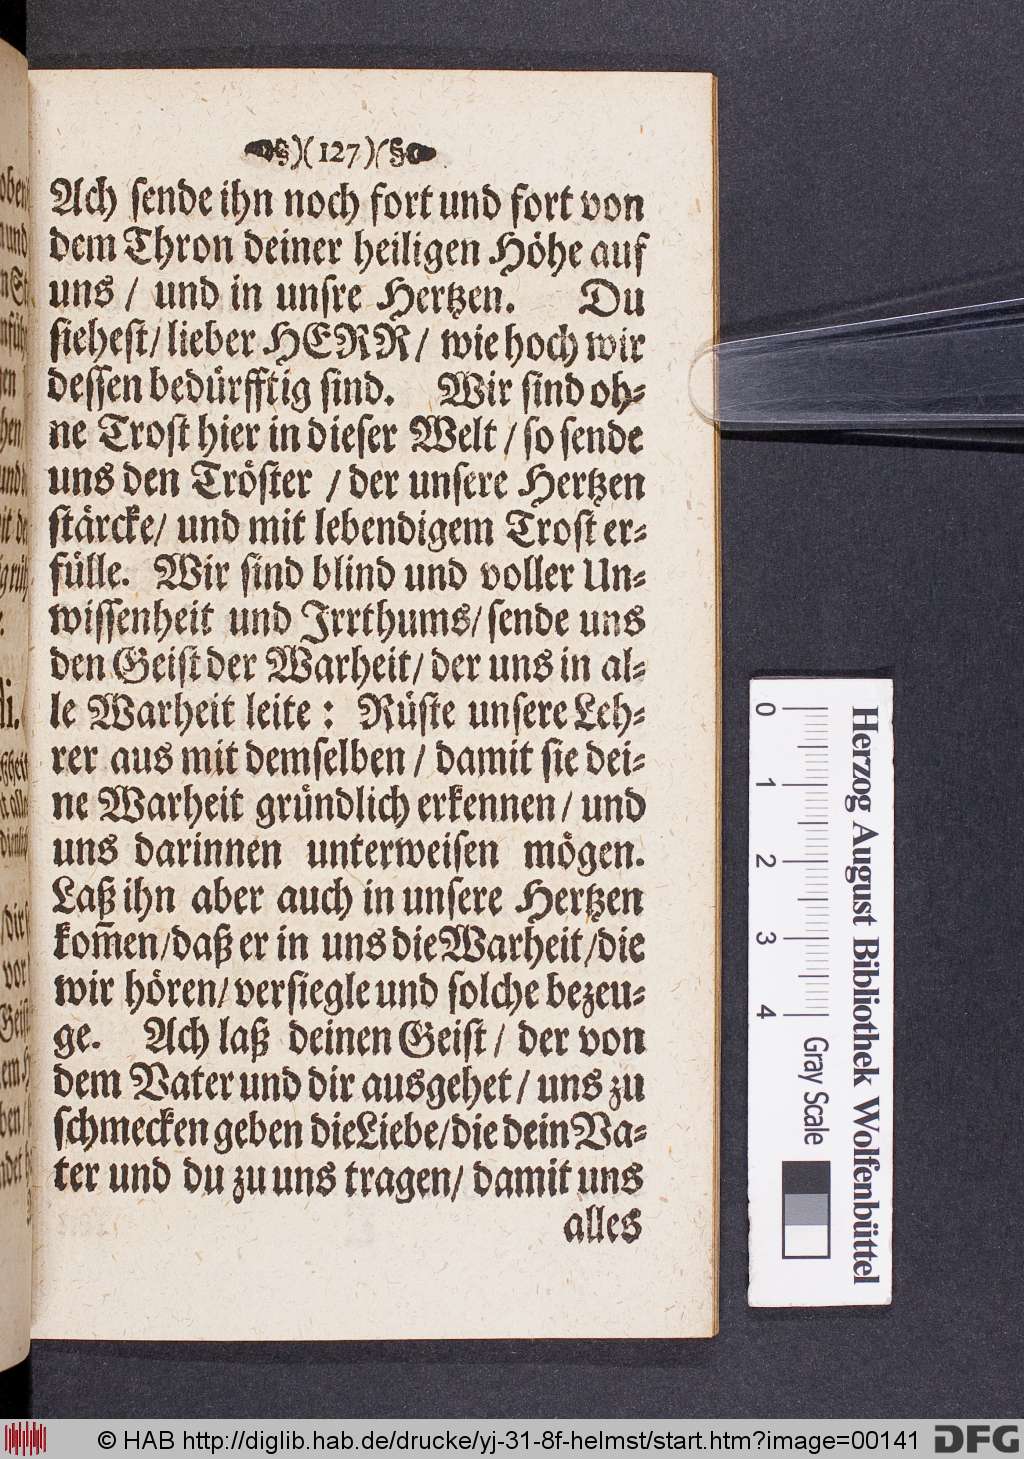 §)(127)(§
Ach sende ihn noch fort und fort von
dem Thron deiner heiligen Höhe auf
uns / und in unsre Hertzen. Du
siehest/ lieber HERR/ wie hoch wir
dessen bedürfftig sind. Wir sind oh-
ne Trost hier in dieser Welt / so sende
uns den Tröster / der unsere Hertzen
stärcke/ und mit lebendigem Trost er-
fülle. Wir sind blind und voller Un-
wissenheit und Irrthums/ sende uns
den Geist der Warheit/ der uns in al-
le Warheit leite : Rüste unsere Leh-
rer aus mit demselben / damit sie dei-
ne Warheit gründlich erkennen / und
uns darinnen unterweisen mögen.
Laß ihn aber auch in unsere Hertzen
kom̅en/daß er in uns die Warheit/die
wir hören/ versiegle und solche bezeu-
ge. Ach laß deinen Geist / der von
dem Vater und dir ausgehet / uns zu
schmecken geben die Liebe/die dein Va-
ter und du zu uns tragen/ damit uns
alles
Herzog August Bibliothek Wolfenbüttel
0 1 2 3 4
Gray Scale
© HAB http://diglib.hab.de/drucke/yj-31-8f-helmst/start.htm?image=00141
DFG